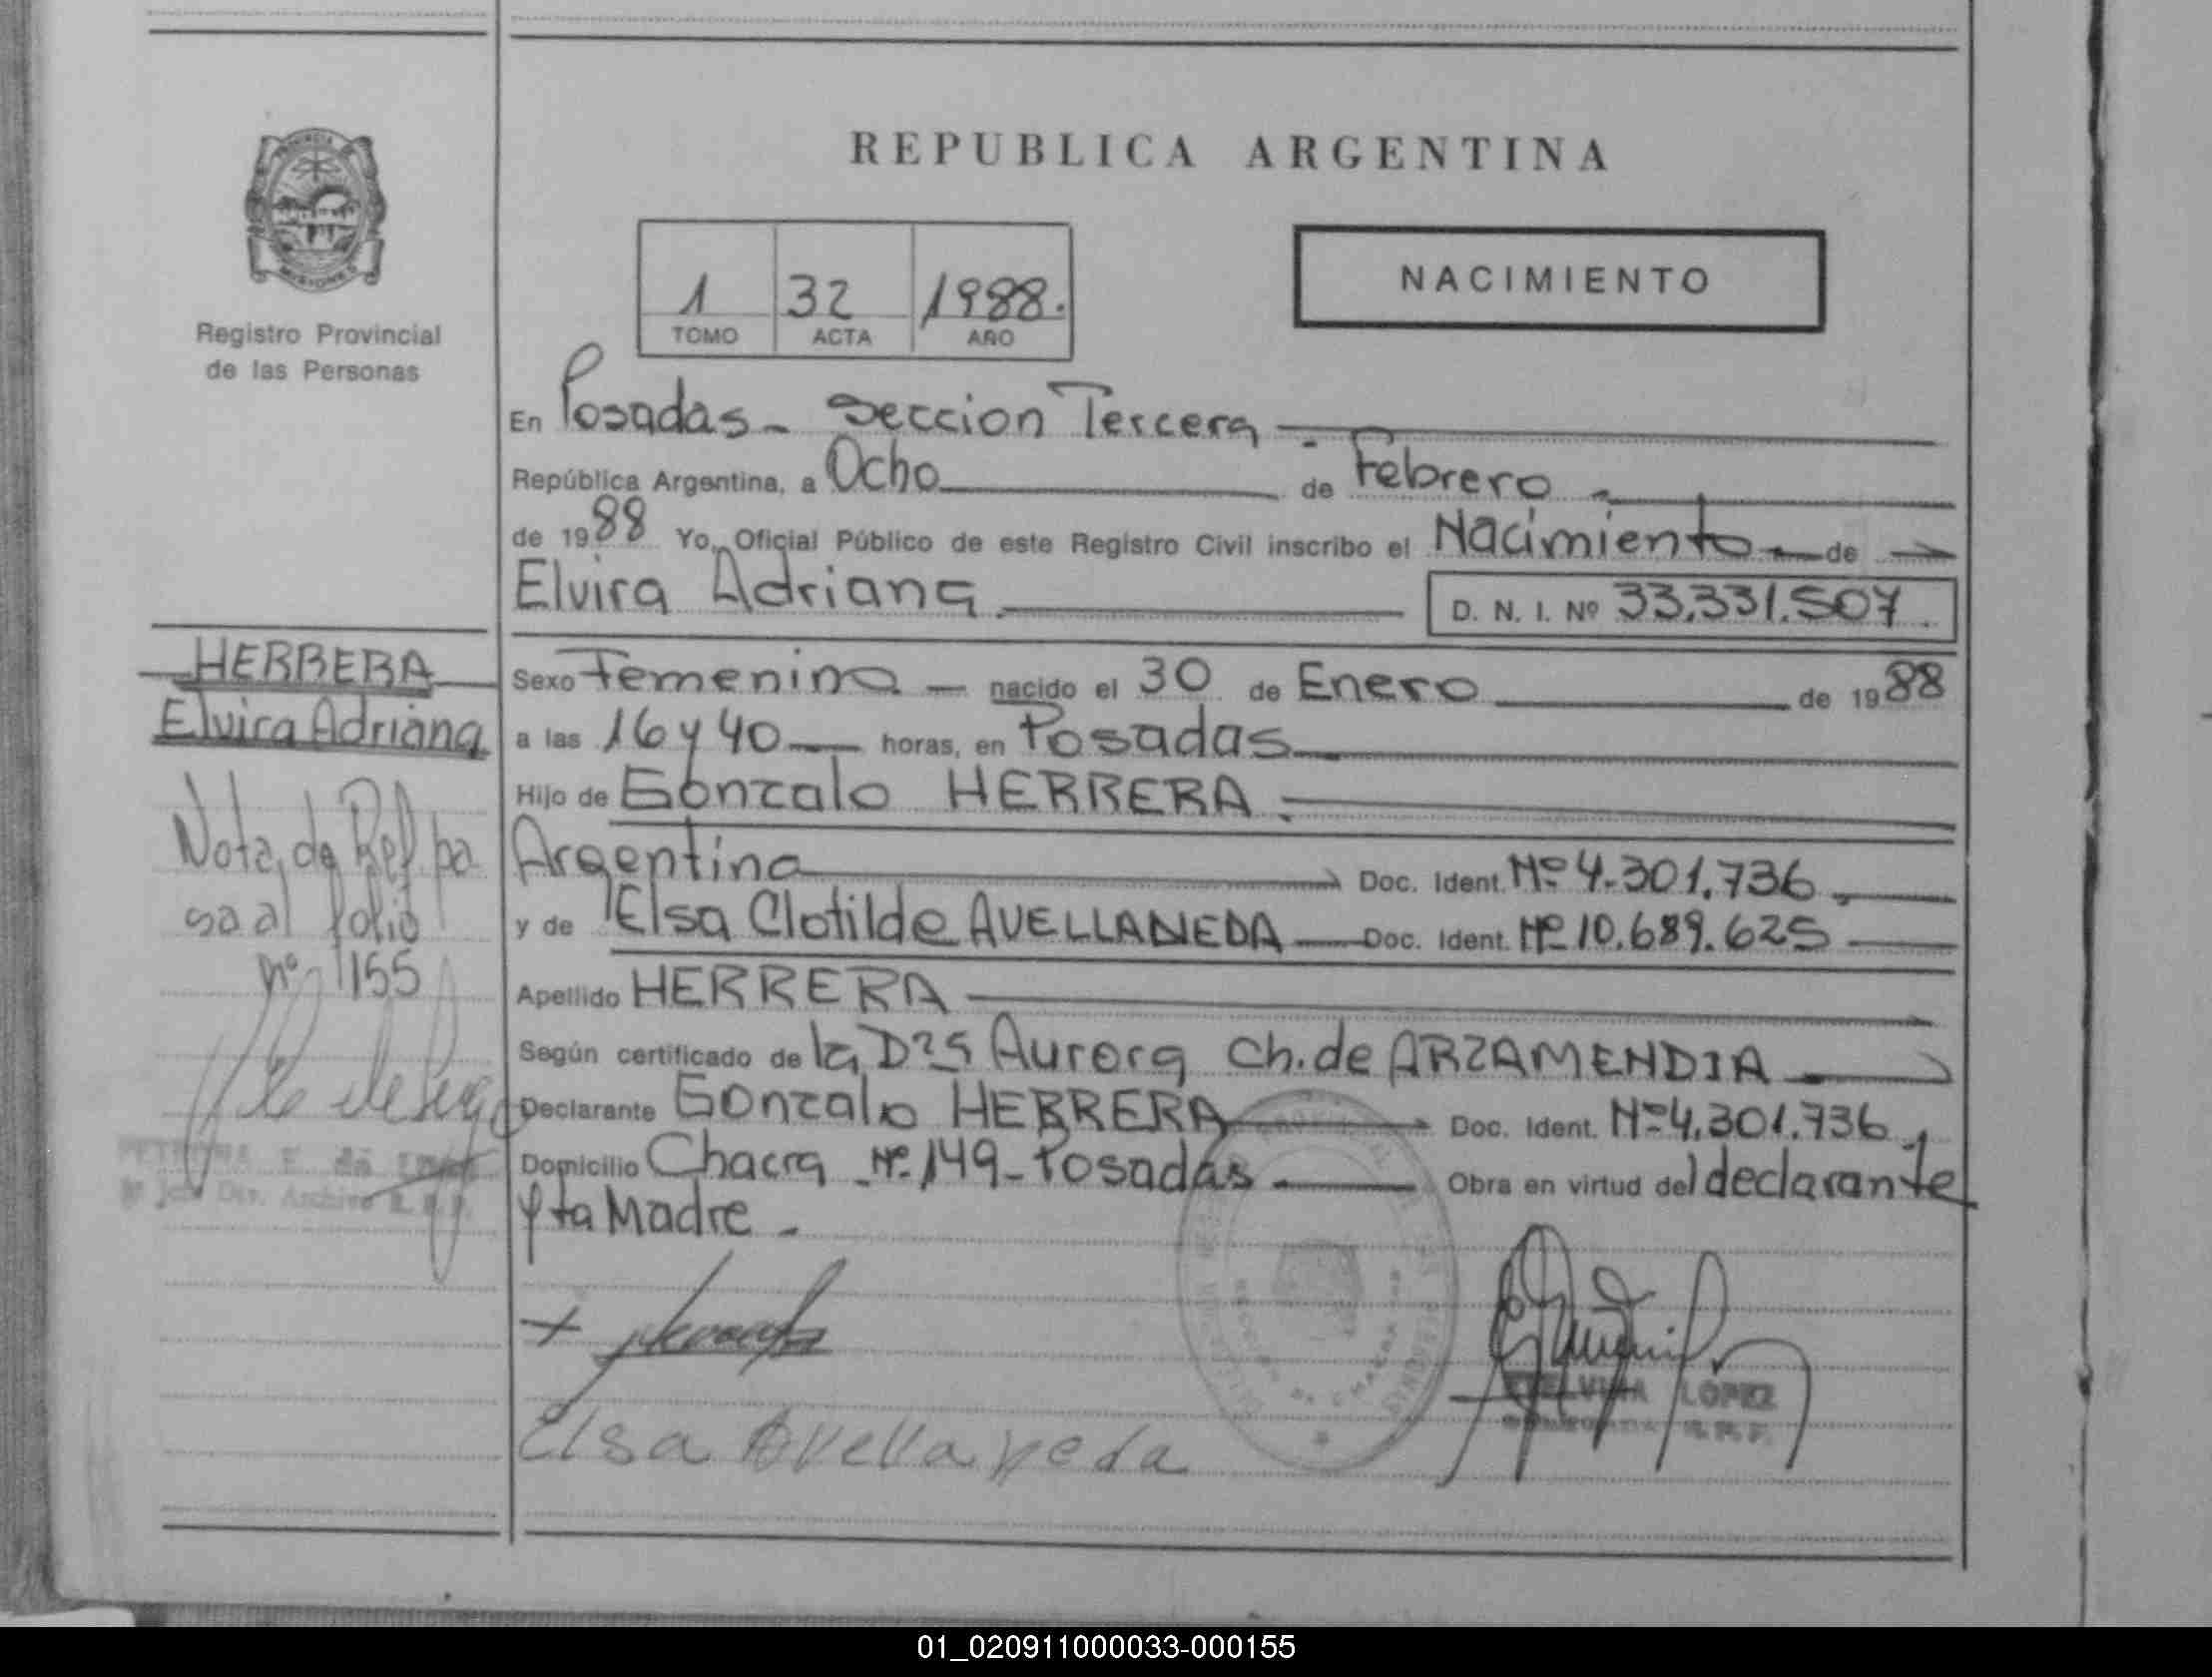 REPUBLICA ARGENTINA
NACIMIENTO
1 32 1988.
TOMO ACTA AÑO
Registro Provincial
de las Personas
En Posadas - Seccion Tercera
República Argentina, a Ocho de Febrero
de 1988 Yo, Oficial Público de este Registro Civil inscribo el Nacimiento de
Elvira Adriana D. N. I. Nº 33.331.507
HERRERA
Elvira Adriana
Nota de Ref pa
sa al folio
nº 155
Sexo Femenino nacido el 30 de Enero de 1988
a las 16 y 40 horas, en Posadas
Hijo de Gonzalo HERRERA
Argentina Doc. Ident. Nº 4.301.736
y de Elsa Clotilde AVELLANEDA Doc. Ident. Nº 10.689.625
Apellido HERRERA
Según certificado de la Dra Aurora Ch. de ARZAMENDIA
Declarante Gonzalo HERRERA Doc. Ident. Nº 4.301.736
Domicilio Chacra Nº 149 - Posadas Obra en virtud del declarante
y la Madre -
Elsa Avellaneda
LOPEZ
01_020911000033-000155